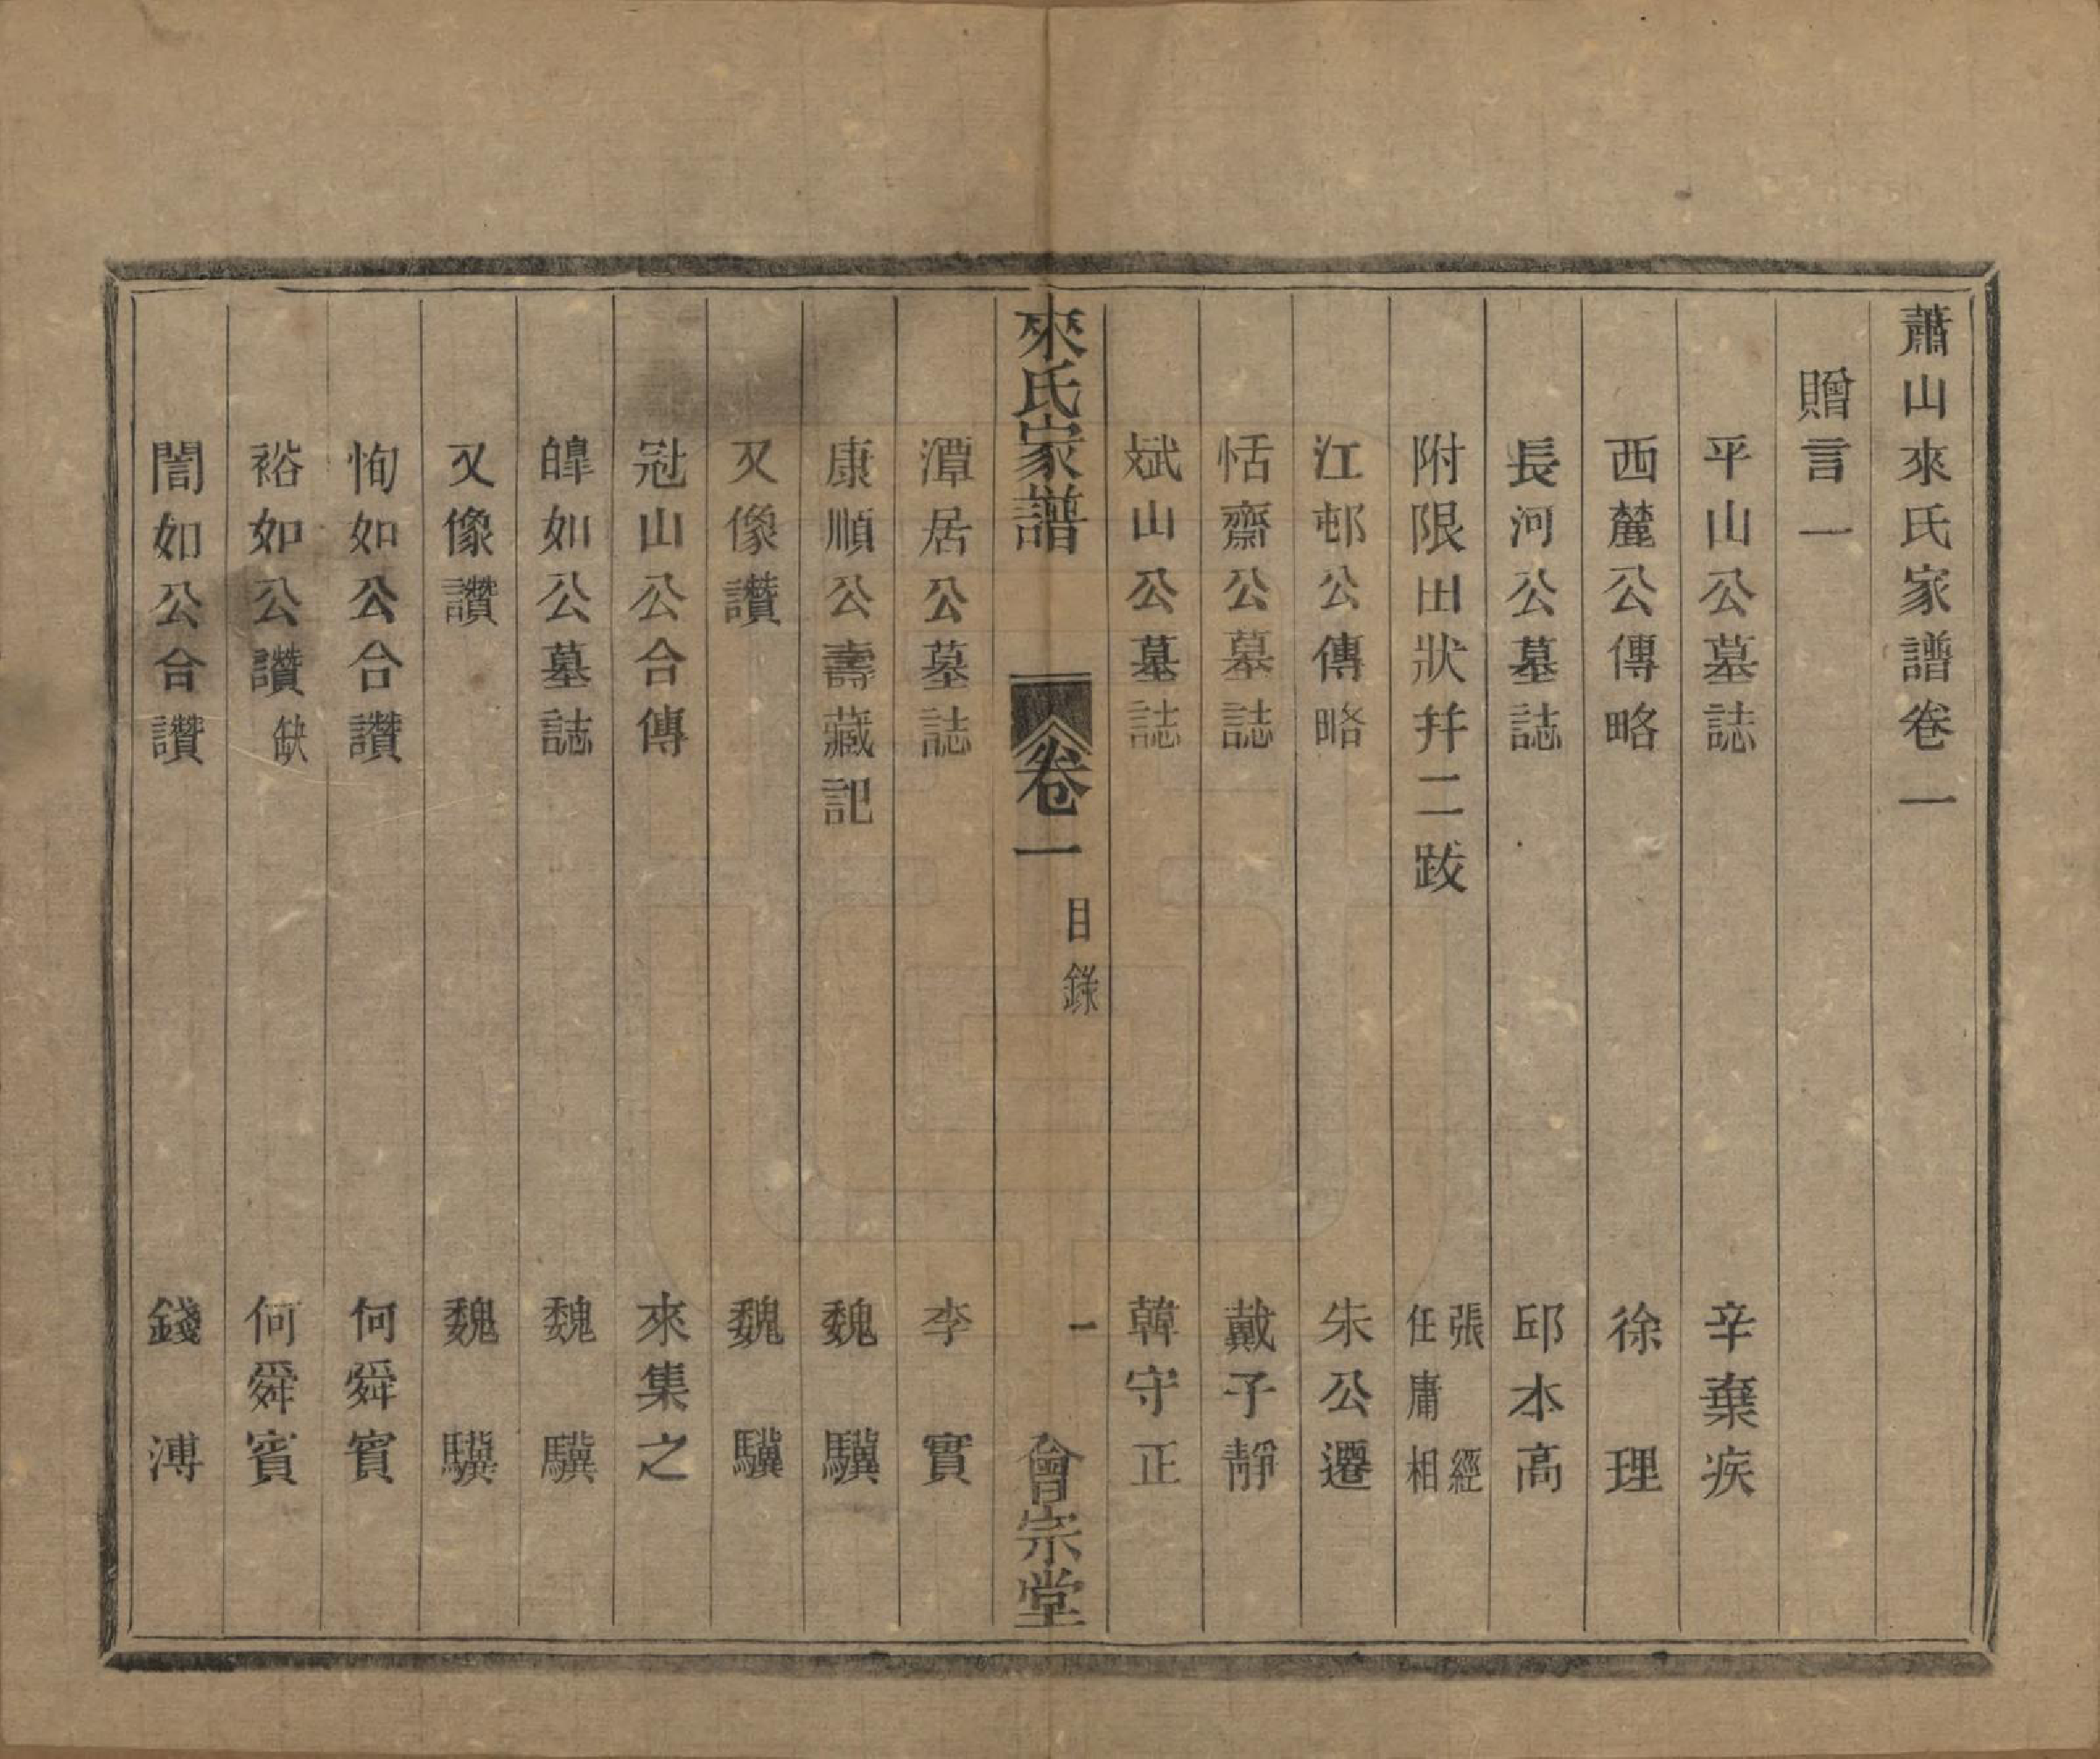 蕭山來氏家譜卷一
贈言一
平山公墓誌 辛棄疾
西麓公傳略 徐理
長河公墓誌 邱本高
附限田狀幷二跋 張經 任庸相
江邨公傳略 朱公遷
恬齋公墓誌 戴子靜
斌山公墓誌 韓守正
來氏家譜 卷一 目錄 一 會宗堂
潭居公墓誌 李實
康順公壽藏記 魏驥
又像讚 魏驥
冠山公合傳 來集之
皥如公墓誌 魏驥
又像讚 魏驥
恂如公合讚 何舜賓
裕如公讚缺 何舜賓
誾如公合讚 錢溥